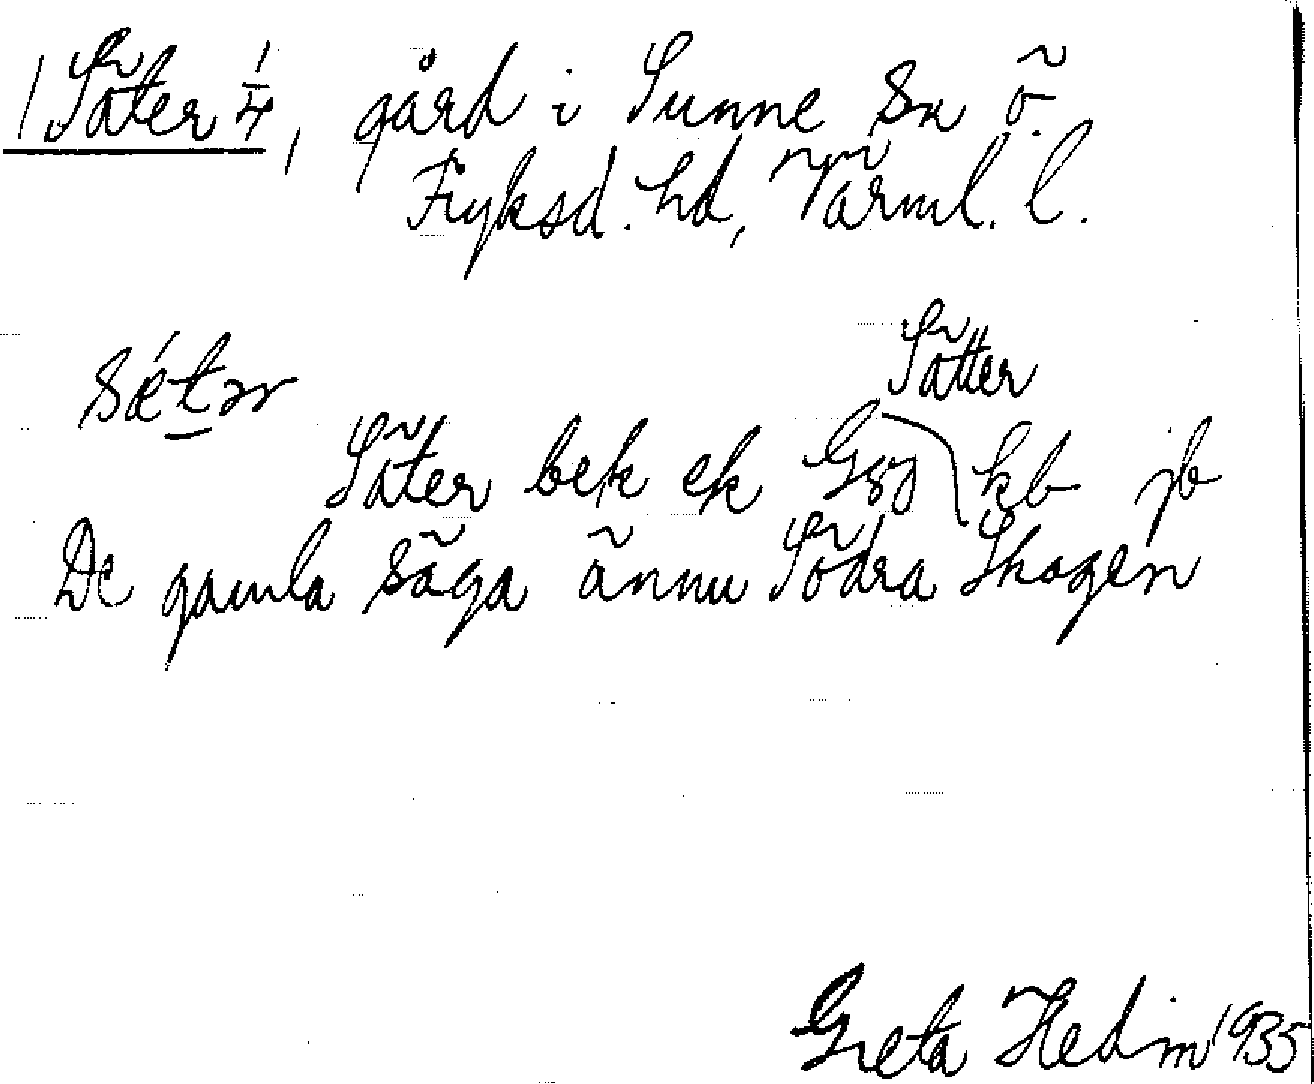 Säter 1/4, gård i Sunne sn Ö.
Fryksd. hd, Värml. l.
sǽtər
Sätter
Säter bek ek Gsg kb jb
De gamla säga ännu Södra Skogen
Greta Hedin 1935